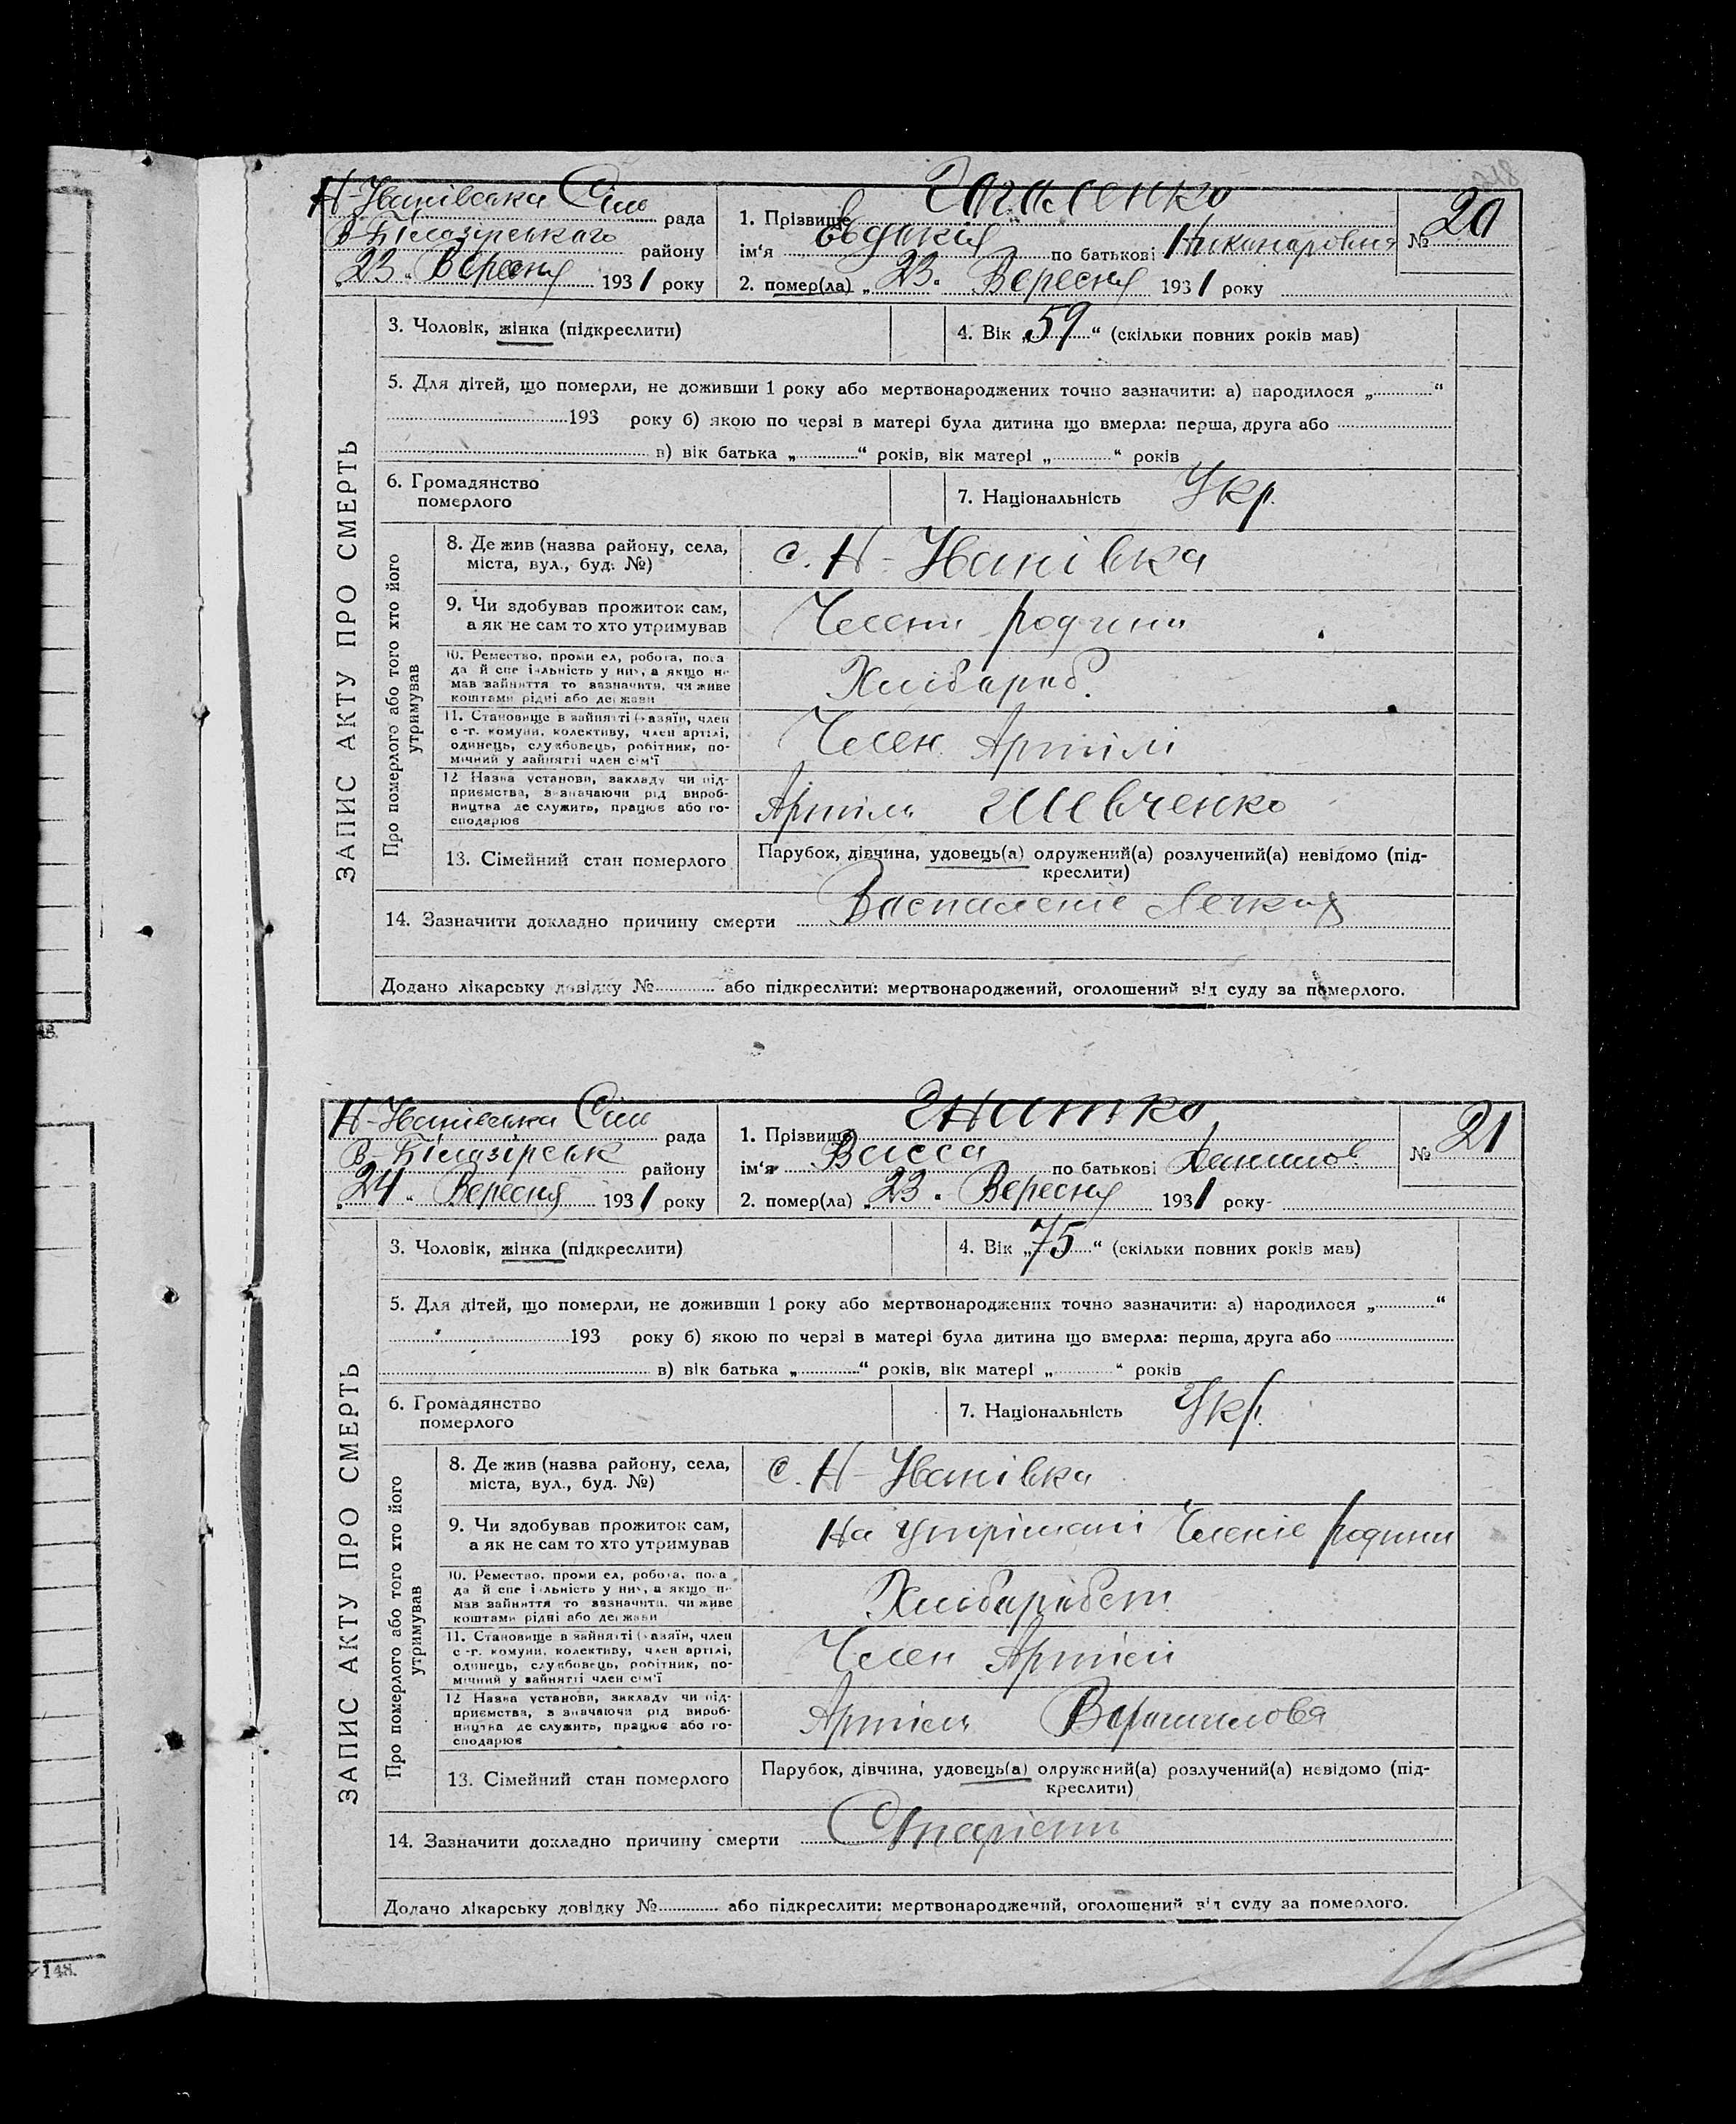 Н-Іванівська Сіль рада
В-Білозірського району
„23„ Вересня 1931 року
1. Прізвище
ім‘я Евдокія по батькові Никанаровня
2. помер(ла) „23„ Вересня 1931 року
№ 20
ЗАПИС АКТУ ПРО СМЕРТЬ
3. Чоловік, жінка (підкреслити)
4. Вік „59“ (скільки повних років мав)
5. Для дітей, що померли, не доживши 1 року або мертвонароджених точно зазначити: а) народилося „ “
193 року б) якою по черзі в матері була дитина що вмерла: перша, друга або
в) вік батька „ “ років, вік матері „ “ років
6. Громадянство
померлого
7. Національність Укр.
Про померлого або того хто його
утримував
8. Де жив (назва району, села,
міста, вул., буд. №)
с. Н-Іванівка
9. Чи здобував прожиток сам,
а як не сам то хто утримував
Члени родини
10. Ремество, промисел, робота, поса
да й спеціальність у них, а якщо не
мав зайняття то зазначити, чи живе
коштами рідні або держави
Хлібароб.
11. Становище в зайнятті (хазяїн, член
с-г. комуни, колективу, член артілі,
одинець, службовець, робітник, по-
мічний у зайнятті член сім‘ї
Член Артілі
12 Назва установи, закладу чи під-
приємства, зазначаючи рід вироб-
ництва де служить, працює або го-
сподарює
Артіль Шевченко
13. Сімейний стан померлого
Парубок, дівчина, удовець(а) одружений(а) розлучений(а) невідомо (під-
креслити)
14. Зазначити докладно причину смерти Васпаленіе Легких
Додано лікарську довідку № або підкреслити: мертвонароджений, оголошений від суду за померлого.
Н-Іванівська Сіль рада
В-Білазірськ району
„24„ Вересня 1931 року
1. Прізвище Гнатко
ім‘я Васса по батькові Данилов.
2. помер(ла) „23„ Вересня 1931 року
№ 21
ЗАПИС АКТУ ПРО СМЕРТЬ
3. Чоловік, жінка (підкреслити)
4. Вік „75“ (скільки повних років мав)
5. Для дітей, що померли, не доживши 1 року або мертвонароджених точно зазначити: а) народилося „ “
193 року б) якою по черзі в матері була дитина що вмерла: перша, друга або
в) вік батька „ “ років, вік матері „ “ років
6. Громадянство
померлого
7. Національність Укр.
Про померлого або того хто його
утримував
8. Де жив (назва району, села,
міста, вул., буд. №)
с. Н-Іванівка
9. Чи здобував прожиток сам,
а як не сам то хто утримував
На утрімані Членів родини
10. Ремество, промисел, робота, поса
да й спеціальність у них, а якщо не
мав зайняття то зазначити, чи живе
коштами рідні або держави
11. Становище в зайнятті (хазяїн, член
с-г. комуни, колективу, член артілі,
одинець, службовець, робітник, по-
мічний у зайнятті член сім‘ї
Член Артілі
12 Назва установи, закладу чи під-
приємства, зазначаючи рід вироб-
ництва де служить, працює або го-
сподарює
Артіль Варашилова
13. Сімейний стан померлого
Парубок, дівчина, удовець(а) одружений(а) розлучений(а) невідомо (під-
креслити)
14. Зазначити докладно причину смерти
Додано лікарську довідку № або підкреслити: мертвонароджений, оголошений від суду за померлого.
148.